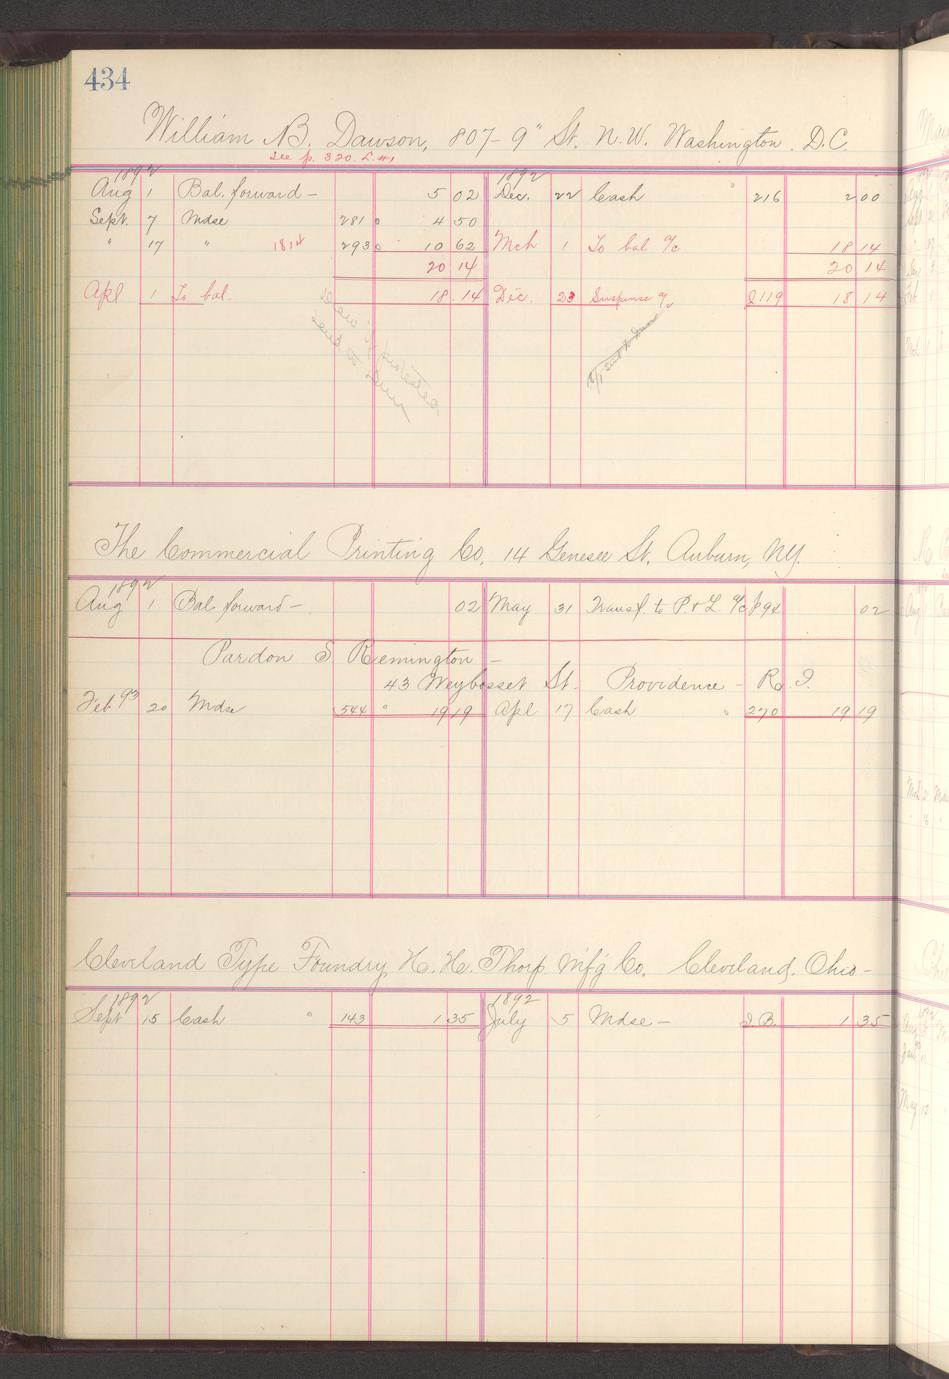 434
William B. Dawson, 807-9" St. N.W. Washington. D.C.
See p. 320. L. #1
1892 1892
Aug 1 Bal. forward - 5 02 Dec. 22 Cash 216 2 00
Sept. 7 Mdse 281 4 50
" 17 " 1814 293 10 62 Mch 1 To bal a/c 18 14
20 14 20 14
Apl 1 To bal. 18.14 Dec. 23 Suspense a/c J119 18 14
The Commercial Printing Co, 14 Genesee St. Auburn, N.Y.
1892
Aug 1 Bal forward - 02 May 31 Transf. to P & L a/c J94 02
Pardon S Remington -
43 Weybosset St. Providence - R.I.
Feb 93 20 Mdse 544 19 19 Apl 17 Cash 270 19 19
Cleveland Type Foundry, H.H. Thorp Mf'g Co. Cleveland. Ohio -
1892 1892
Sept 15 Cash 143 1 35 July 5 Mdse - I.B. 1 35